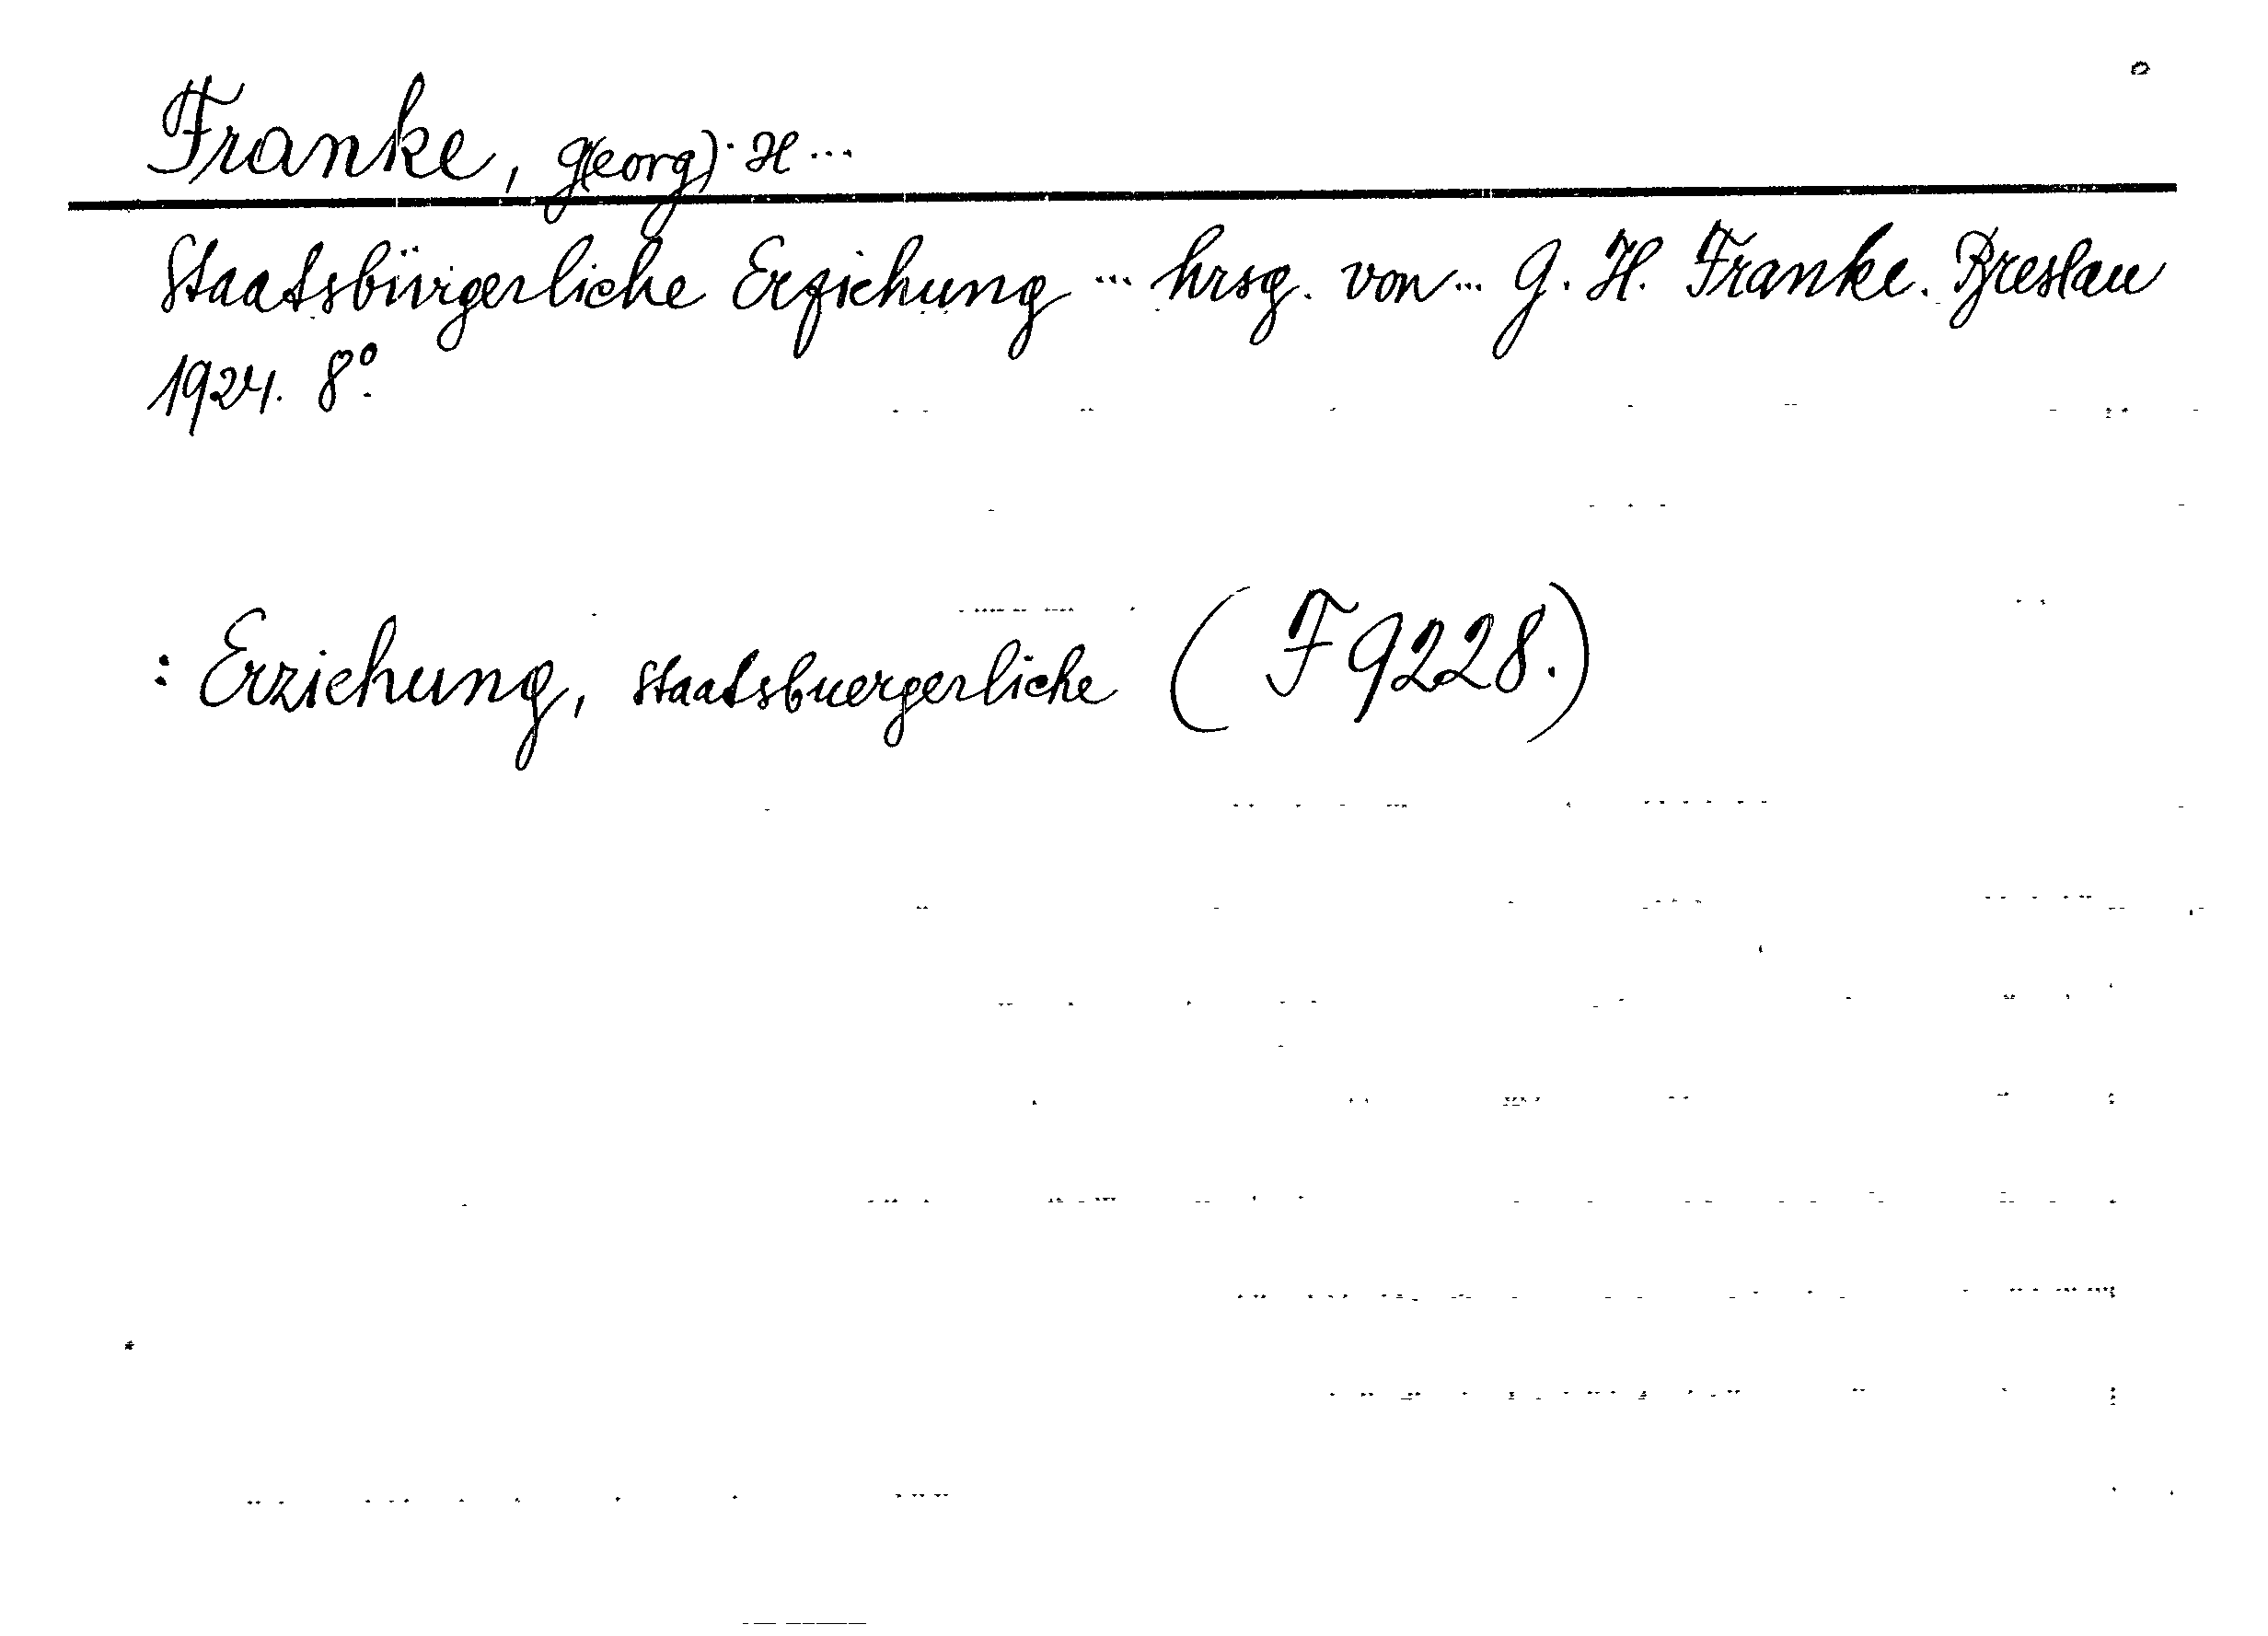 Franke, G(eorg). H...
Staatsbürgerliche Erziehung ... hrsg. von ... G. H. Franke. Breslau
1924. 8°.
: Erziehung, staatsbuergerliche (F 9228.)